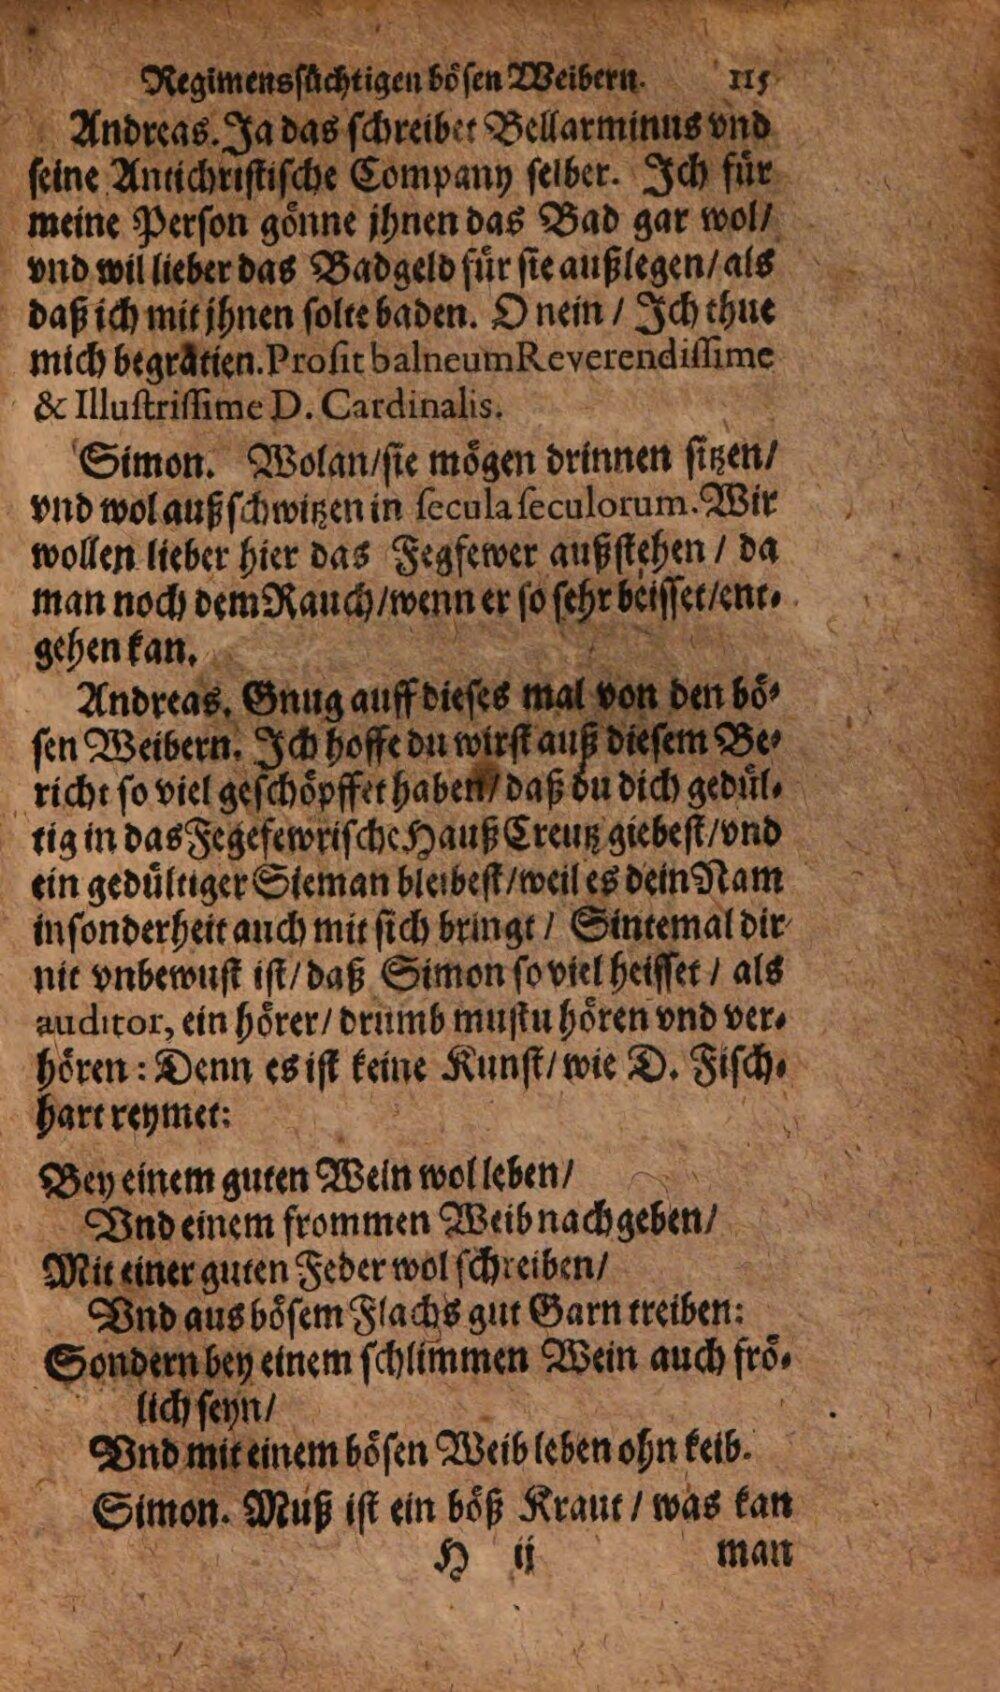 Regimenssüchtigen bösen Weibern. 115
Andreas. Ja das schreibet Bellarminus vnd
seine Antichristische Company selber. Ich für
meine Person gönne jhnen das Bad gar wol/
vnd wil lieber das Badgeld für sie außlegen/als
daß ich mit jhnen solte baden. O nein / Ich thue
mich begratien. Prosit balneum Reverendissime
& Illustrissime D. Cardinalis.
Simon. Wolan/sie mögen drinnen sitzen/
vnd wol außschwitzen in secula seculorum. Wir
wollen lieber hier das Fegfewer außstehen / da
man noch dem Rauch/wenn er so sehr beisset/ent-
gehen kan.
Andreas. Gnug auff dieses mal von den bö-
sen Weibern. Ich hoffe du wirst auß diesem Be-
richt so viel geschöpffet haben/daß du dich gedül-
tig in das Fegefewrische Hauß Creutz giebest/vnd
ein gedültiger Sieman bleibest/weil es dein Nam
insonderheit auch mit sich bringt / Sintemal dir
nit vnbewust ist/daß Simon so viel heisset / als
auditor, ein hörer/ drumb mustu hören vnd ver-
hören: Denn es ist keine Kunst/wie D. Fisch-
hart reymet:
Bey einem guten Wein wol leben/
Vnd einem frommen Weib nachgeben/
Mit einer guten Feder wol schreiben/
Vnd aus bösem Flachs gut Garn treiben:
Sondern bey einem schlimmen Wein auch frö-
lich seyn/
Vnd mit einem bösen Weib leben ohn keib.
Simon. Muß ist ein böß Kraut / was kan
H ij man